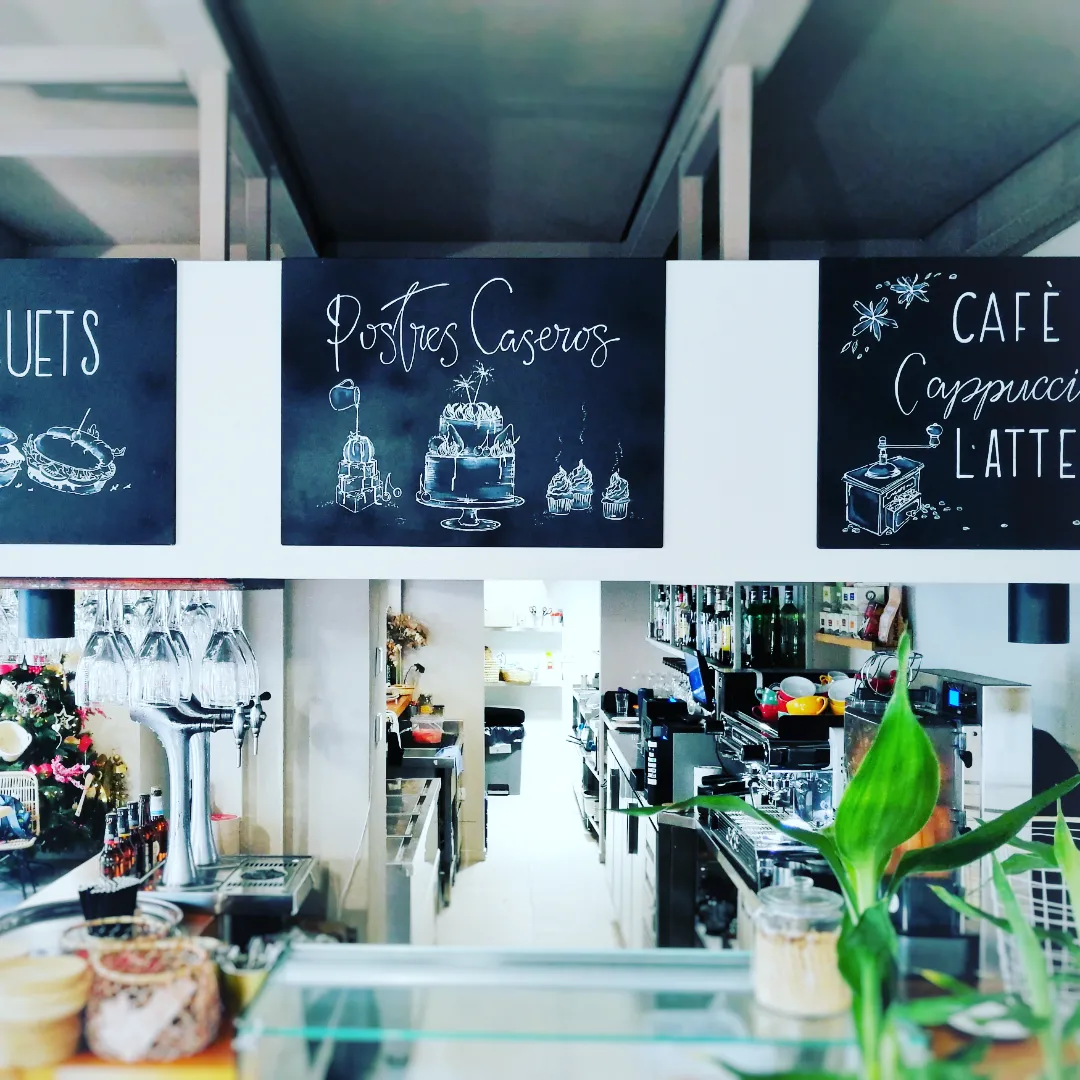 UETS
Postres Caseros
CAFÈ
Cappucci
LATTE